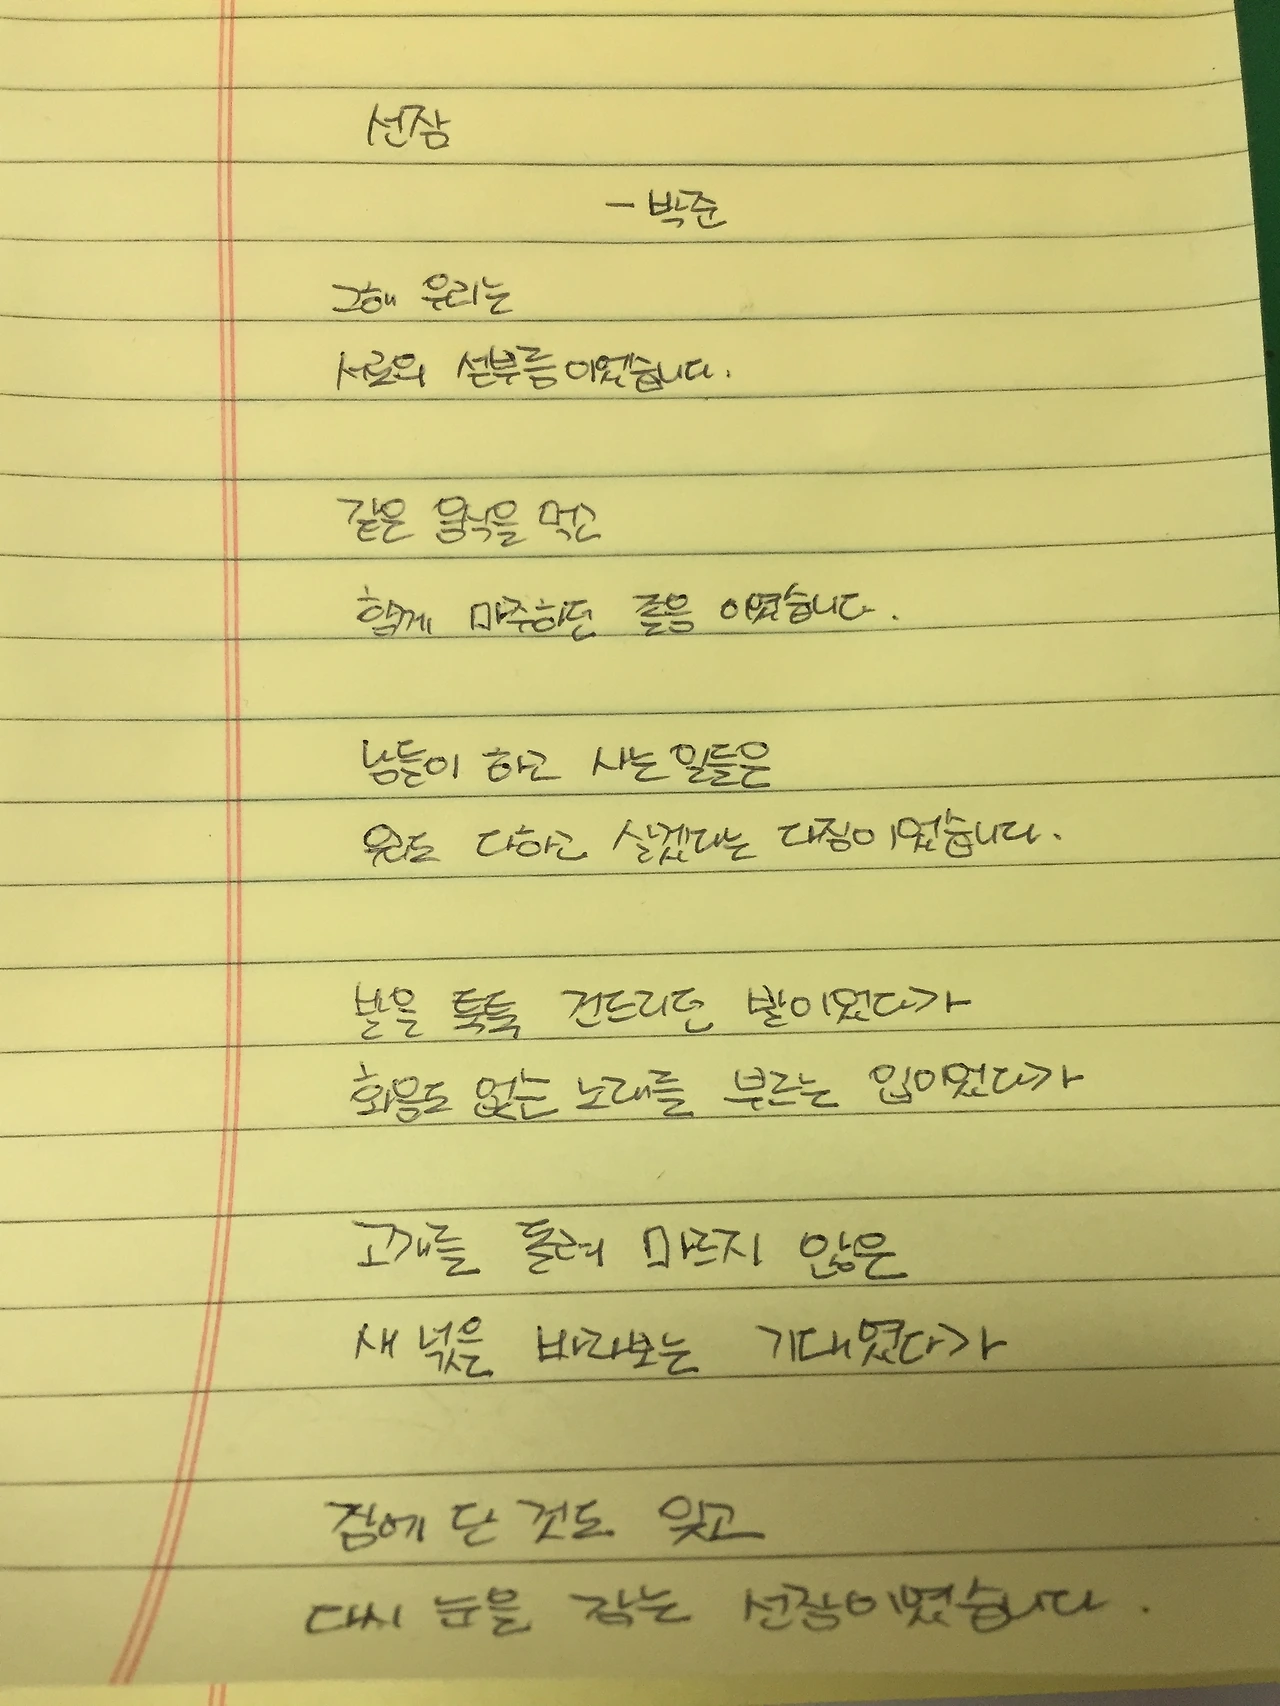 선잠
- 박준
그해 우리는
서로의 섣부름이었습니다.
같은 음식을 먹고
함께 마주하던 졸음 이였습니다.
남들이 하고 사는 일들은
우리도 다하고 살겠다는 다짐이었습니다.
발을 툭툭 건드리던 발이었다가
화음도 없는 노래를 부르는 입이었다가
고개를 돌려 마르지 않은
새 녘을 바라보는 기대였다가
잠에 든 것도 잊고
다시 눈을 감는 선잠이였습니다.